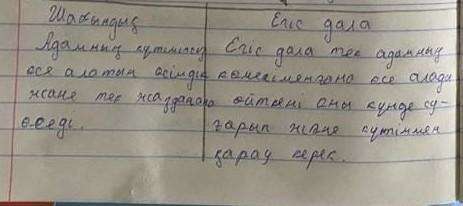 Шабындық Егіс дала
Адамның күтімінсіз Егіс дала тек адамның
өсе алатын өсімдік көмегіменғана өсе алады
және тек жазданана өйткені оны күнде су-
өседі. ғарып және күтіммен
қарау керек.